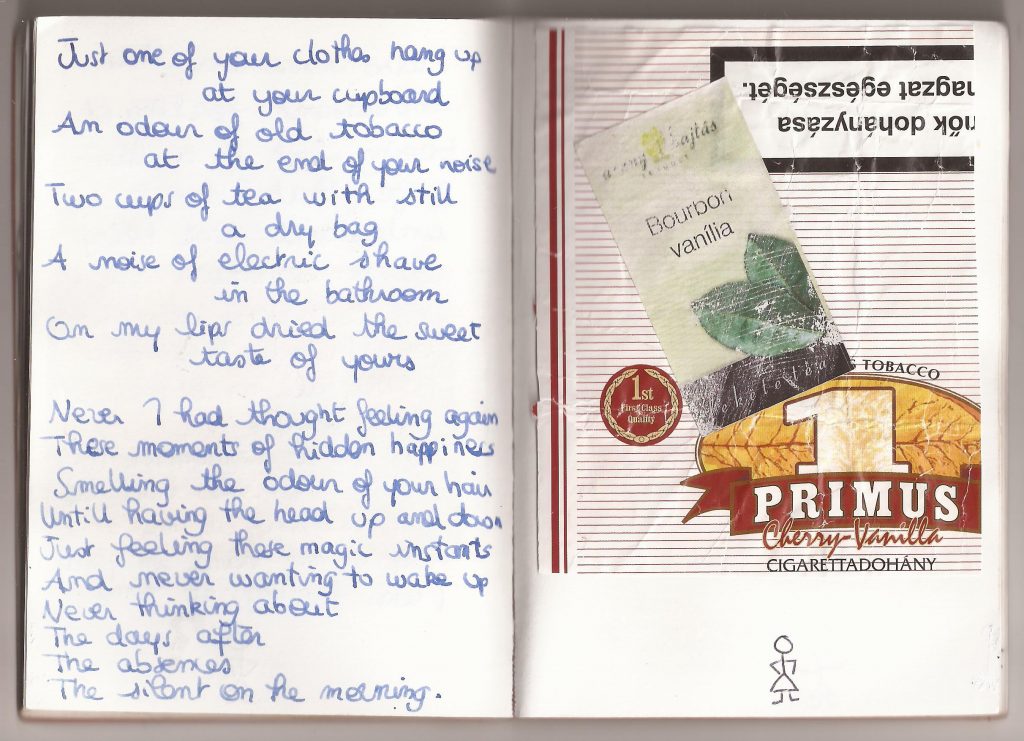 Just one of your clothes hang up
at your cupboard
An odour of old tobacco
at the end of your noise
Two cups of tea with still
a dry bag
A noise of electric shave
in the bathroom
On my lips dried the sweet
taste of yours
Never I had thought feeling again
These moments of hidden happiness
Smelling the odour of your hair
Untill having the head up and down
Just feeling these magic instants
And never wanting to wake up
Never thinking about
The days after
The absences
The silent on the morning.
nők dohányzása
nagzat egészségét.
arany hajtás
Bourbon
vanília
fekete tea
1st
First Class
Quality
TOBACCO
1
PRIMUS
Cherry-Vanilla
CIGARETTADOHÁNY